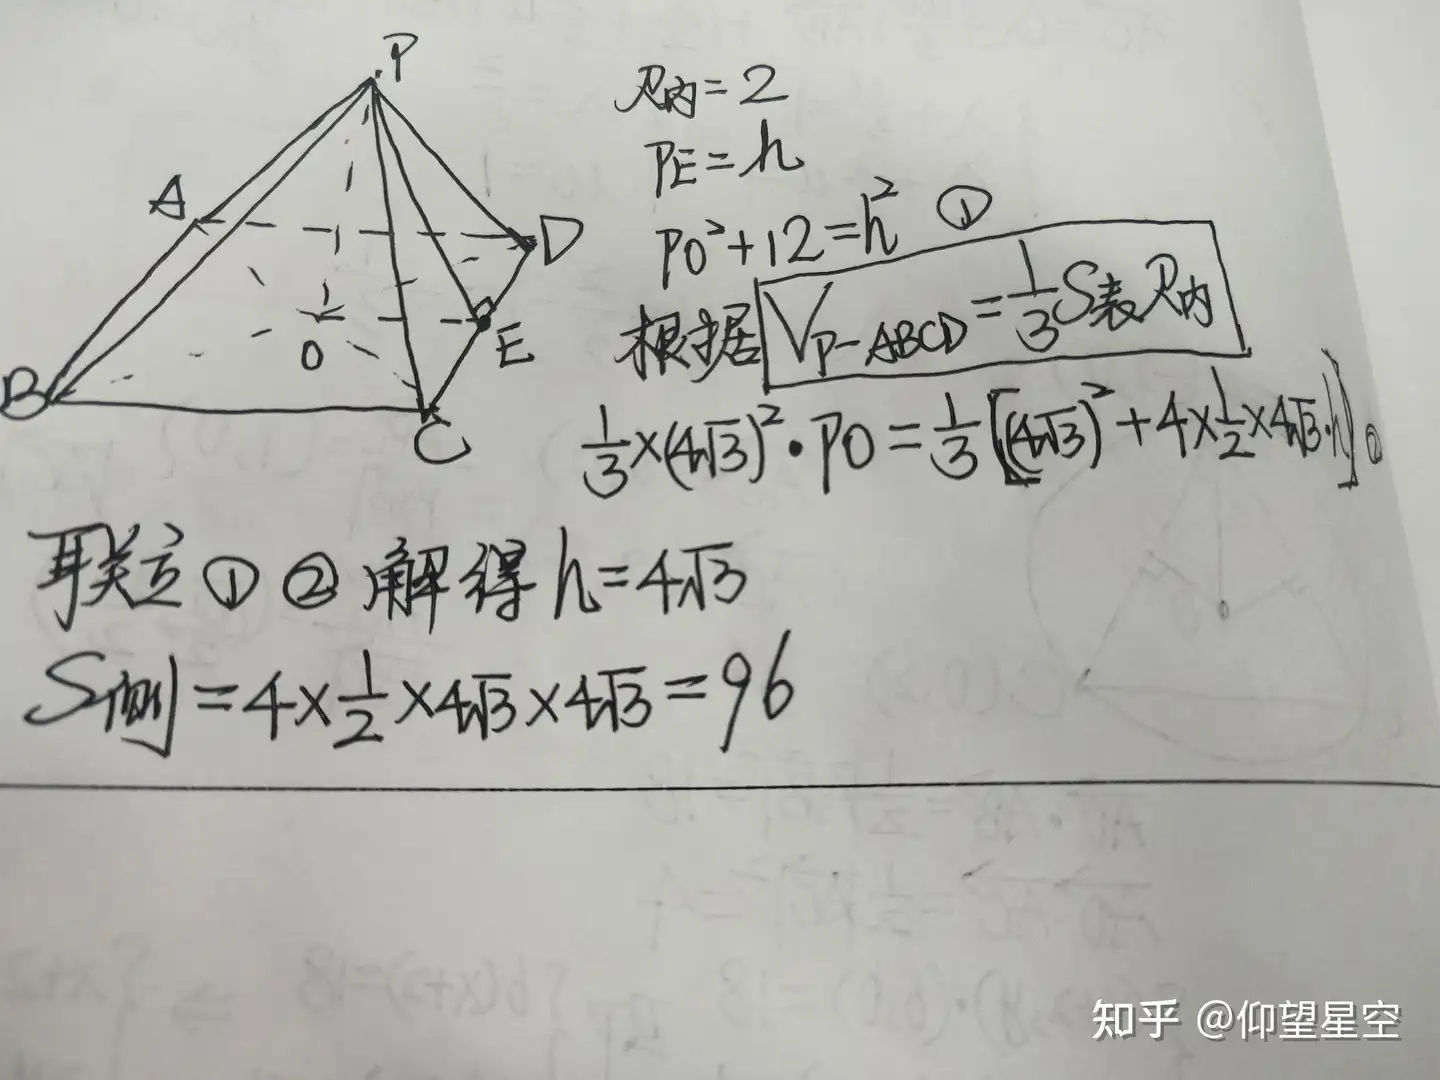 P
A
D
B
O
E
C
R内=2
PE=h
PO²+12=h² ①
根据 V_{P-ABCD}=\frac{1}{3}S表R内
\frac{1}{3}×(4√3)²·PO=\frac{1}{3}[(4√3)²+4×\frac{1}{2}×4√3·h] ②
联立①②解得h=4√3
S侧=4×\frac{1}{2}×4√3×4√3=96
知乎 @仰望星空